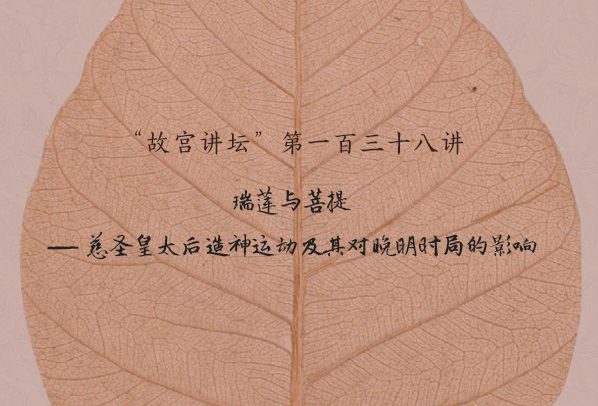 “故宫讲坛”第一百三十八讲
瑞莲与菩提
—— 慈圣皇太后造神运动及其对晚明时局的影响